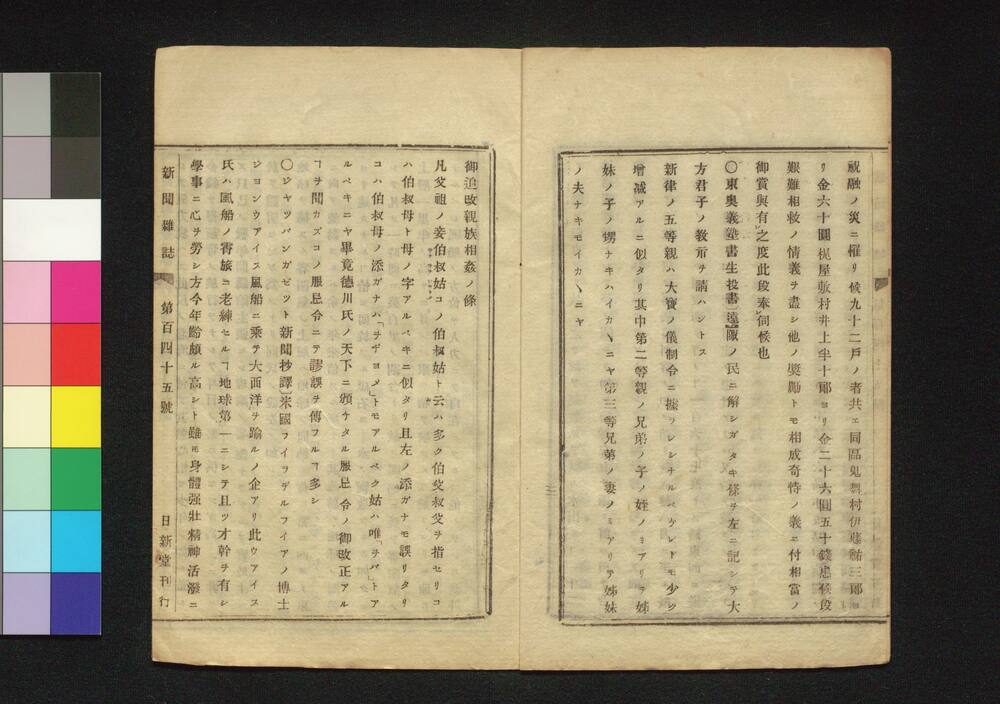 祝融ノ災ニ罹リ候九十二戸ノ者共ェ同區鬼舞村伊藤祐三郞ヨ
リ金六十圓梶屋敷村井上半十郞ヨリ金二十六圓五十錢惠候段
艱難相救ノ情義ヲ盡シ他ノ奬勵トモ相成奇特ノ義ニ付相當ノ
御賞與有之度此段奉伺候也
〇東奥義塾書生投書遠陬ノ民ニ解シガタキ條ヲ左ニ記シテ大
方君子ノ敎示ヲ請ハントス
新律ノ五等親ハ大寶ノ儀制令ニ據ラレシナルベケレドモ少シ
增減アルニ似タリ其中第二等親ノ兄弟ノ子ノ姪ノミアリテ姊
妹ノ子ノ甥ナキハイカヽニヤ第三等兄弟ノ妻ノミアリテ姊妹
ノ夫ナキモイカヽニヤ
御追改親族相姦ノ條
凡父祖ノ妾伯叔姑コノ伯叔姑ト云ハ多ク伯父叔父ヲ指セリコ
ハ伯叔母ト母ノ字アルベキニ似タリ且左ノ添ガナモ誤リタリ
コハ伯叔母ノ添ガナハ「ヲヂヨメ」トモアルベク姑ハ唯「ヲバ」トア
ルベキニヤ畢竟德川氏ノ天下ニ頒ケタル服忌令ノ御改正アル
ヿヲ聞カズコノ服忌令ニテ謬誤ヲ傳フルヿ多シ
〇ジャッパンガゼット新聞抄譯米國フイラデルフイアノ博士
ジョンウアイス風船ニ乘テ大西洋ヲ踰ルノ企アリ此ウアイス
氏ハ風船ノ霄旅ニ老練セルヿ地球第一ニシテ且ツ才幹ヲ有シ
學事ニ心ヲ勞シ方今年齡頗ル高シト雖モ身體强壯精神活潑ニ
新聞雜誌 第百四十五號 日新堂刊行